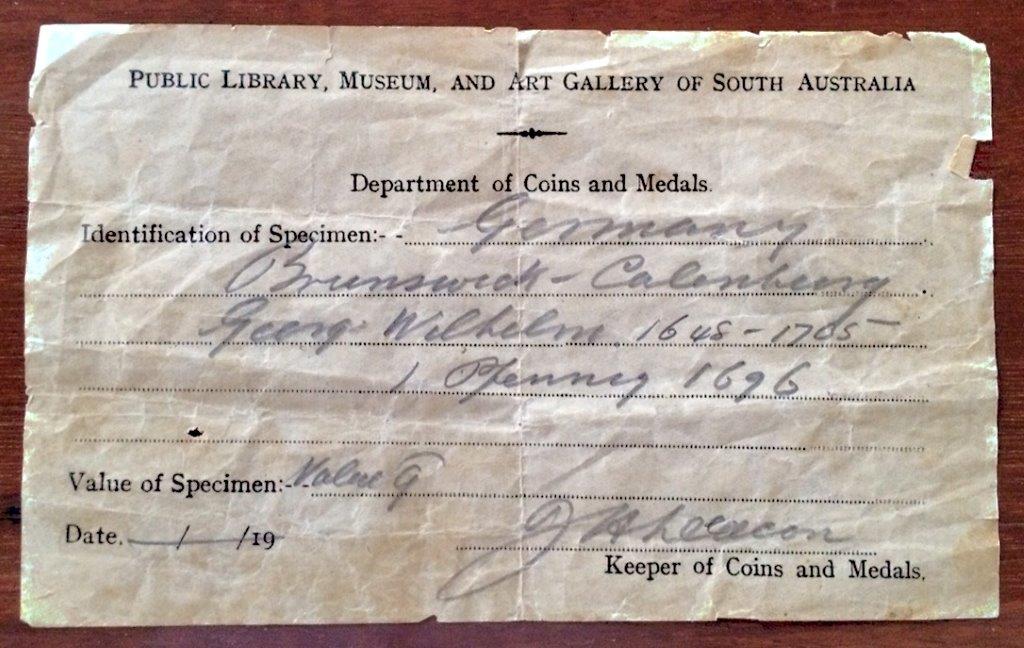 PUBLIC LIBRARY, MUSEUM, AND ART GALLERY OF SOUTH AUSTRALIA
Department of Coins and Medals.
Identification of Specimen:- - Germany
Brunswick - Calenberg
Georg Wilhelm 1648 - 1705
1 Pfennig 1696
Value of Specimen:- - Value
Date. / /19
Keeper of Coins and Medals.